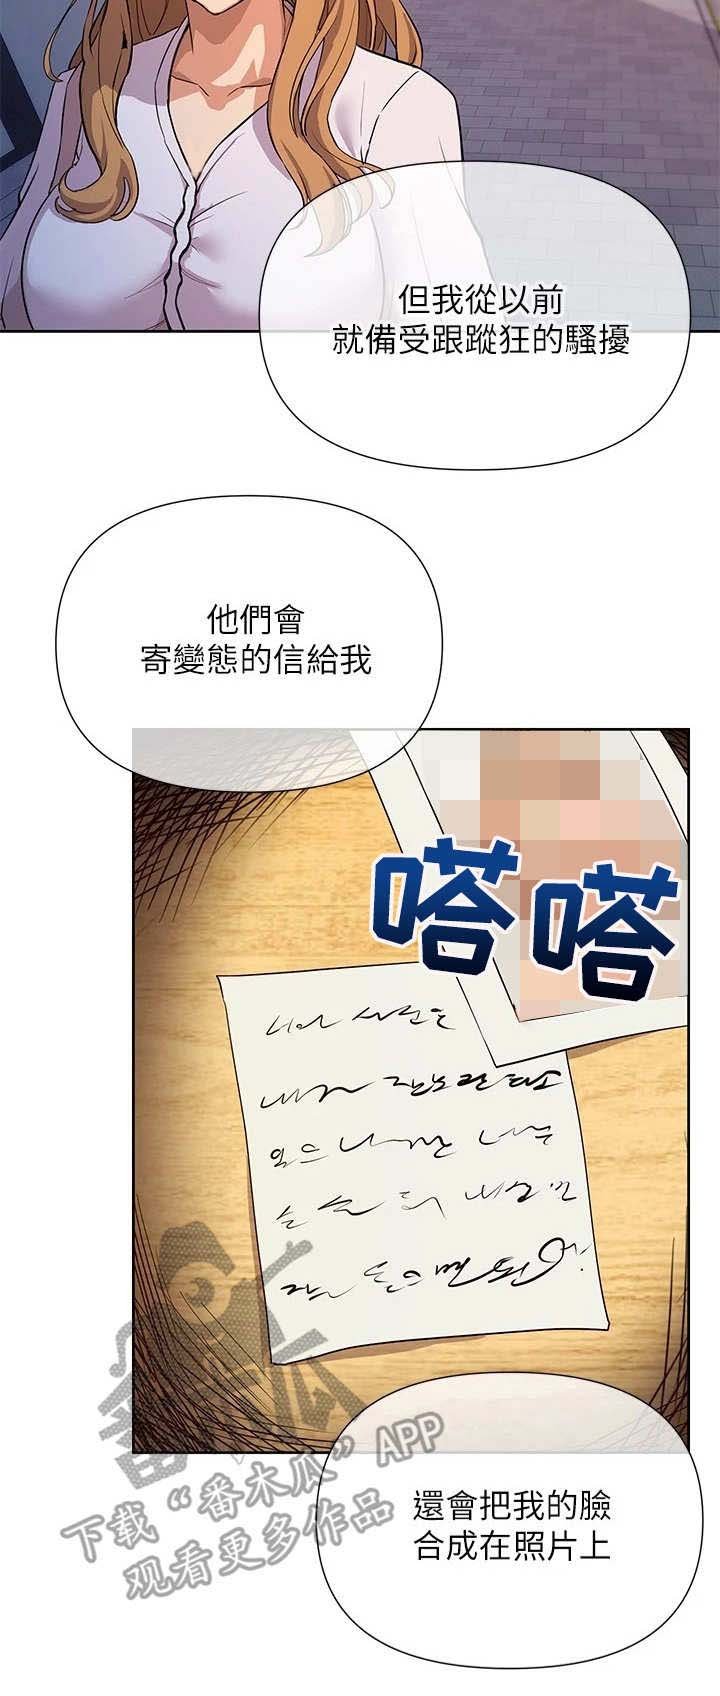 但我從以前
就備受跟蹤狂的騷擾
他們會
寄變態的信給我
嗒嗒
還會把我的臉
合成在照片上
番木瓜
下载“番木瓜”APP
观看更多作品